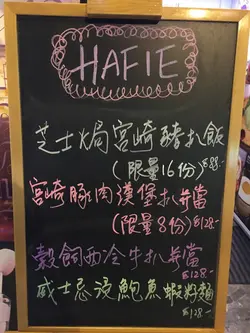 HAFIE
芝士焗宮崎豬扒飯
(限量16份) $88.-
宮崎豚肉漢堡扒弁當
(限量8份) $128.-
穀飼西冷牛扒弁當
$128.-
威士忌浸鮑魚蝦籽麵
$128.-